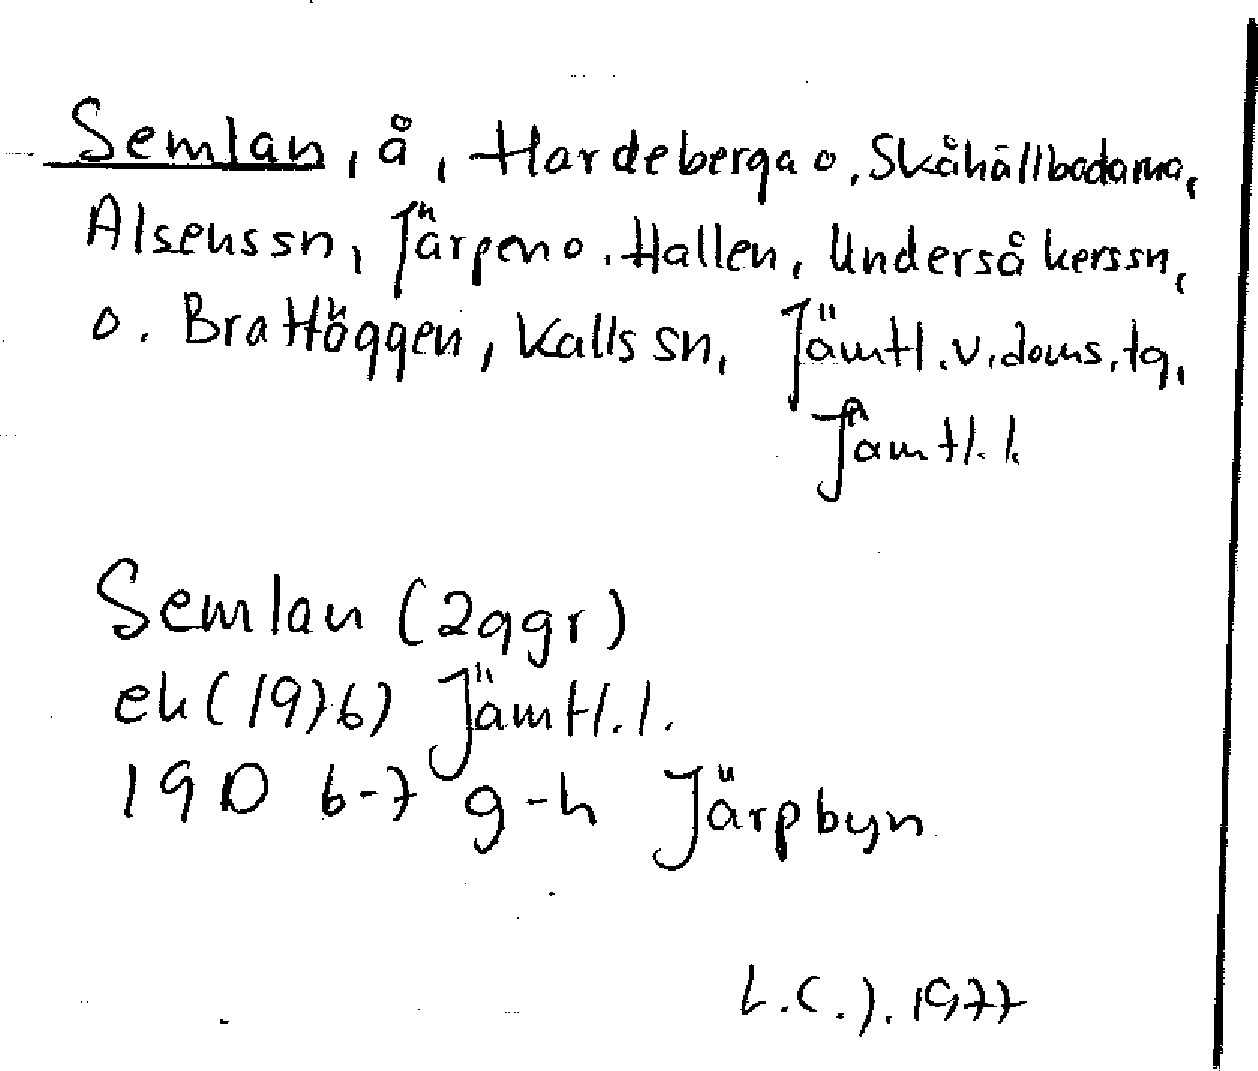 Semlan, å, Hardeberga o. Skåhållbodarna,
Alsens sn, Järpen o. Hallen, Undersåkers sn,
o. Brattöggen, Kalls sn, Jämtl. v. doms. tg,
Jämtl. l.
Semlan (2 ggr)
ek (1976) Jämtl. l.
19D 6-7 g-h Järpbyn
L.C.J. 1977